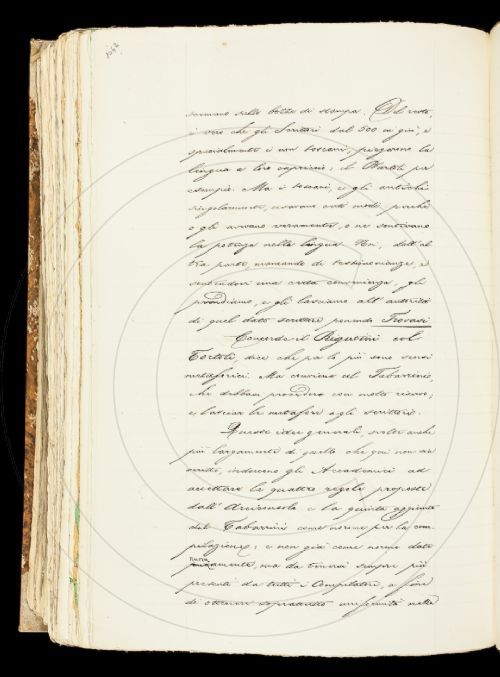 1042
scrivano sulle bozze di stampa. Del resto,
è vero che gli Scrittori dal 500 in giù, e
specialmente i non toscani, piegarono la
lingua a loro capriccio; il Bartoli per
esempio. Ma i toscani, e gli antichi
singolarmente, usavano certi modi perché
o gli avevano veramente, o ne sentivano
la potenza nella lingua. Noi, dall'al
tra parte, mancando di testimonianze, e
sentendovi una certa convenienza, gli
prendiamo, e gli lasciamo all'autorità
di quel dato scrittore ponendo Trovasi.
Concorda il Rigutini col
Tortoli, dice che per lo più sono sensi
metaforici. Ma conviene col Tabarrini,
che debbasi procedere con molto riserbo,
e lasciar le metafore agli scrittori.
Queste idee generali, svolte anche
più largamente di quello che qui non sia
scritto, inducono gli Accademici ad
accettare le quattro regole proposte
dall'Arciconsolo e la quinta aggiunta
dal Tabarrini come norme per la com
pilazione; e non già come norme date
ma da tenersi sempre più
presenti da tutti i Compilatori, a fine
di ottenere soprattutto uniformità nella